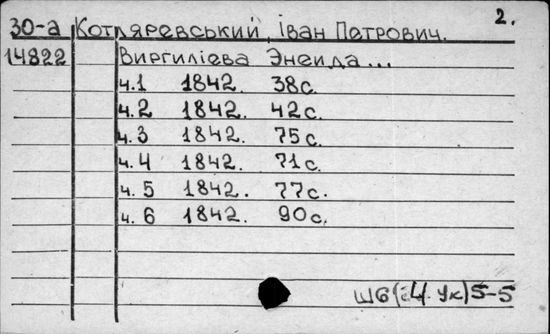 2.
30-а Котляревський, Іван Петрович.
14822 Виргиліева Энеида...
ч.1 1842. 38с.
ч.2 1842. 42с.
ч.3 1842. 75с.
ч.4 1842. 71с.
ч.5 1842. 77с.
ч.6 1842. 90с.
Ш6(=4.Ук)5-5